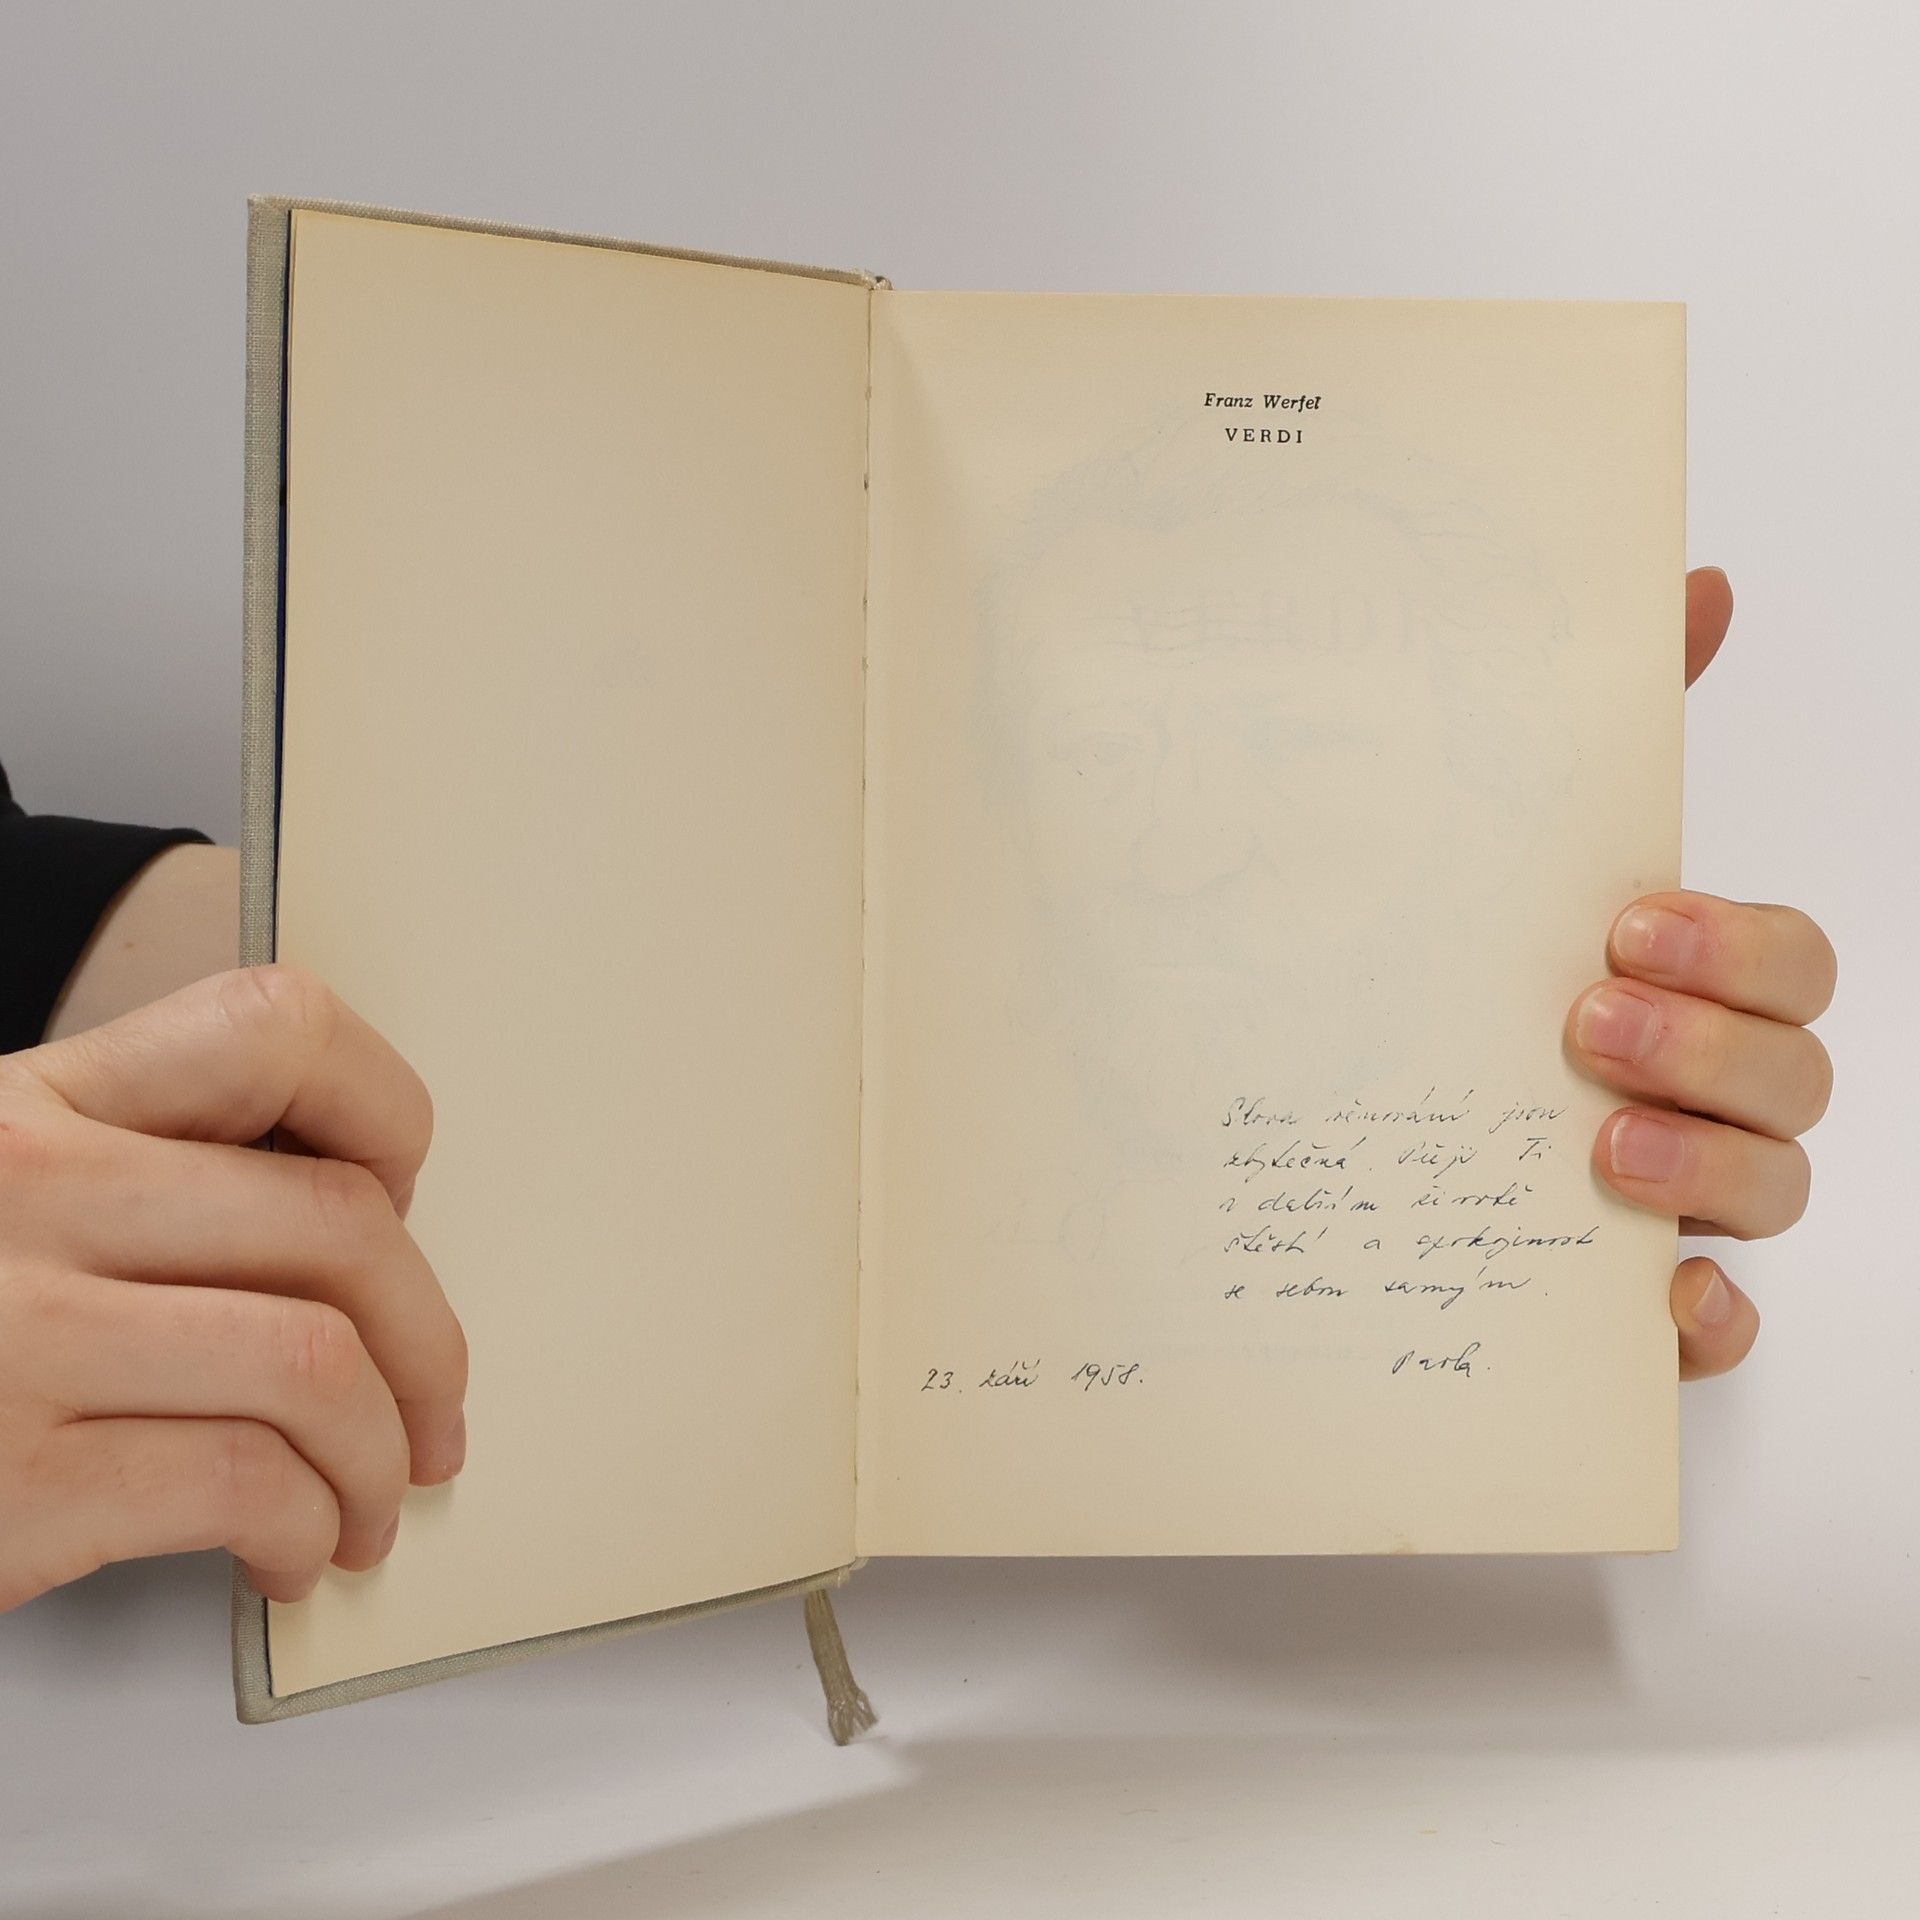 Franz Werfel
VERDI
Slova věnování jsou
zbytečná. Přeji Ti
v dalším životě
štěstí a spokojenost
se sebou samým.
23. září 1958.
Pavla.